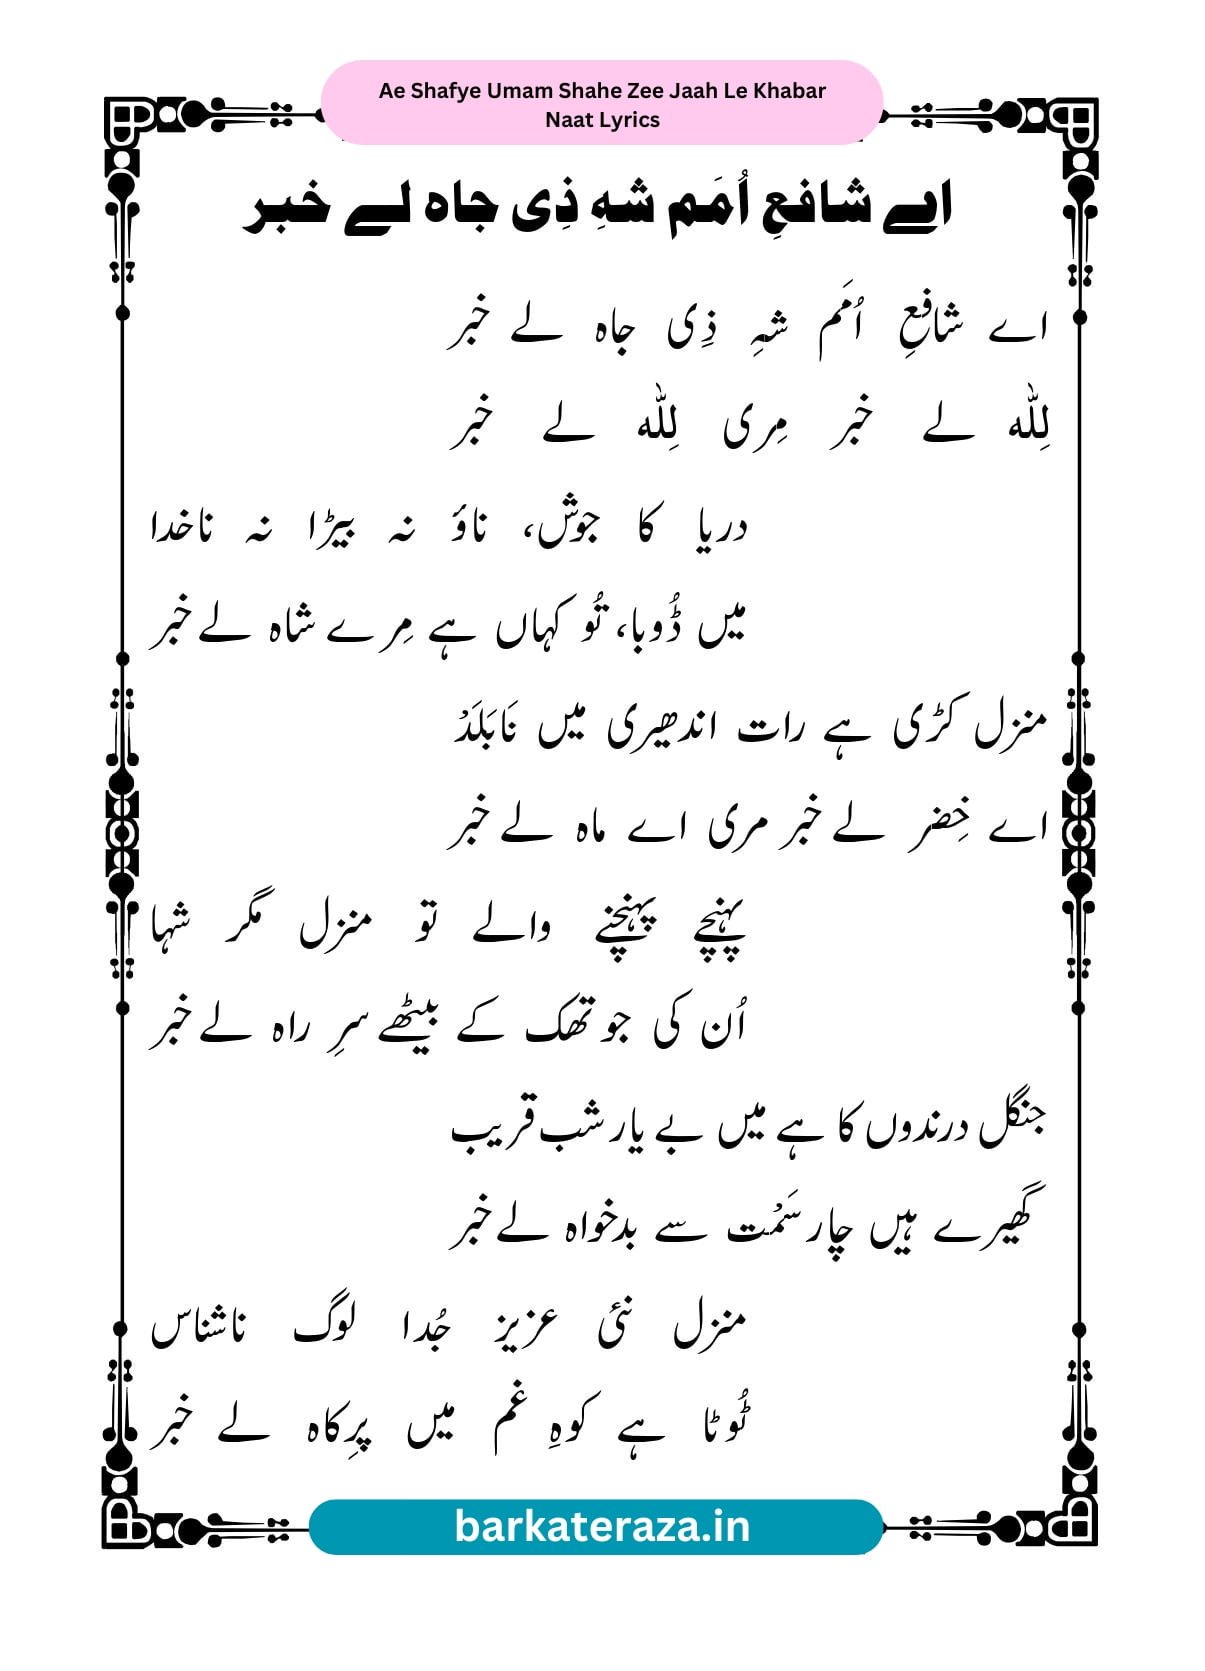 Ae Shafye Umam Shahe Zee Jaah Le Khabar
Naat Lyrics
اے شافعِ اُمَم شہِ ذِی جاہ لے خبر
اے شافعِ اُمَم شہِ ذِی جاہ لے خبر
لِلّٰہ لے خبر مِری لِلّٰہ لے خبر
دریا کا جوش، ناؤ نہ بیڑا نہ ناخدا
میں ڈُوبا، تُو کہاں ہے مِرے شاہ لے خبر
منزل کڑی ہے رات اندھیری میں نَابَلَدْ
اے خِضر لے خبر مری اے ماہ لے خبر
پہنچے پہنچنے والے تو منزل مگر شہا
اُن کی جو تھک کے بیٹھے سرِ راہ لے خبر
جنگل درندوں کا ہے میں بے یار شب قریب
گھیرے ہیں چار سَمْت سے بدخواہ لے خبر
منزل نئی عزیز جُدا لوگ ناشناس
ٹُوٹا ہے کوہِ غم میں پرِکاہ لے خبر
barkateraza.in